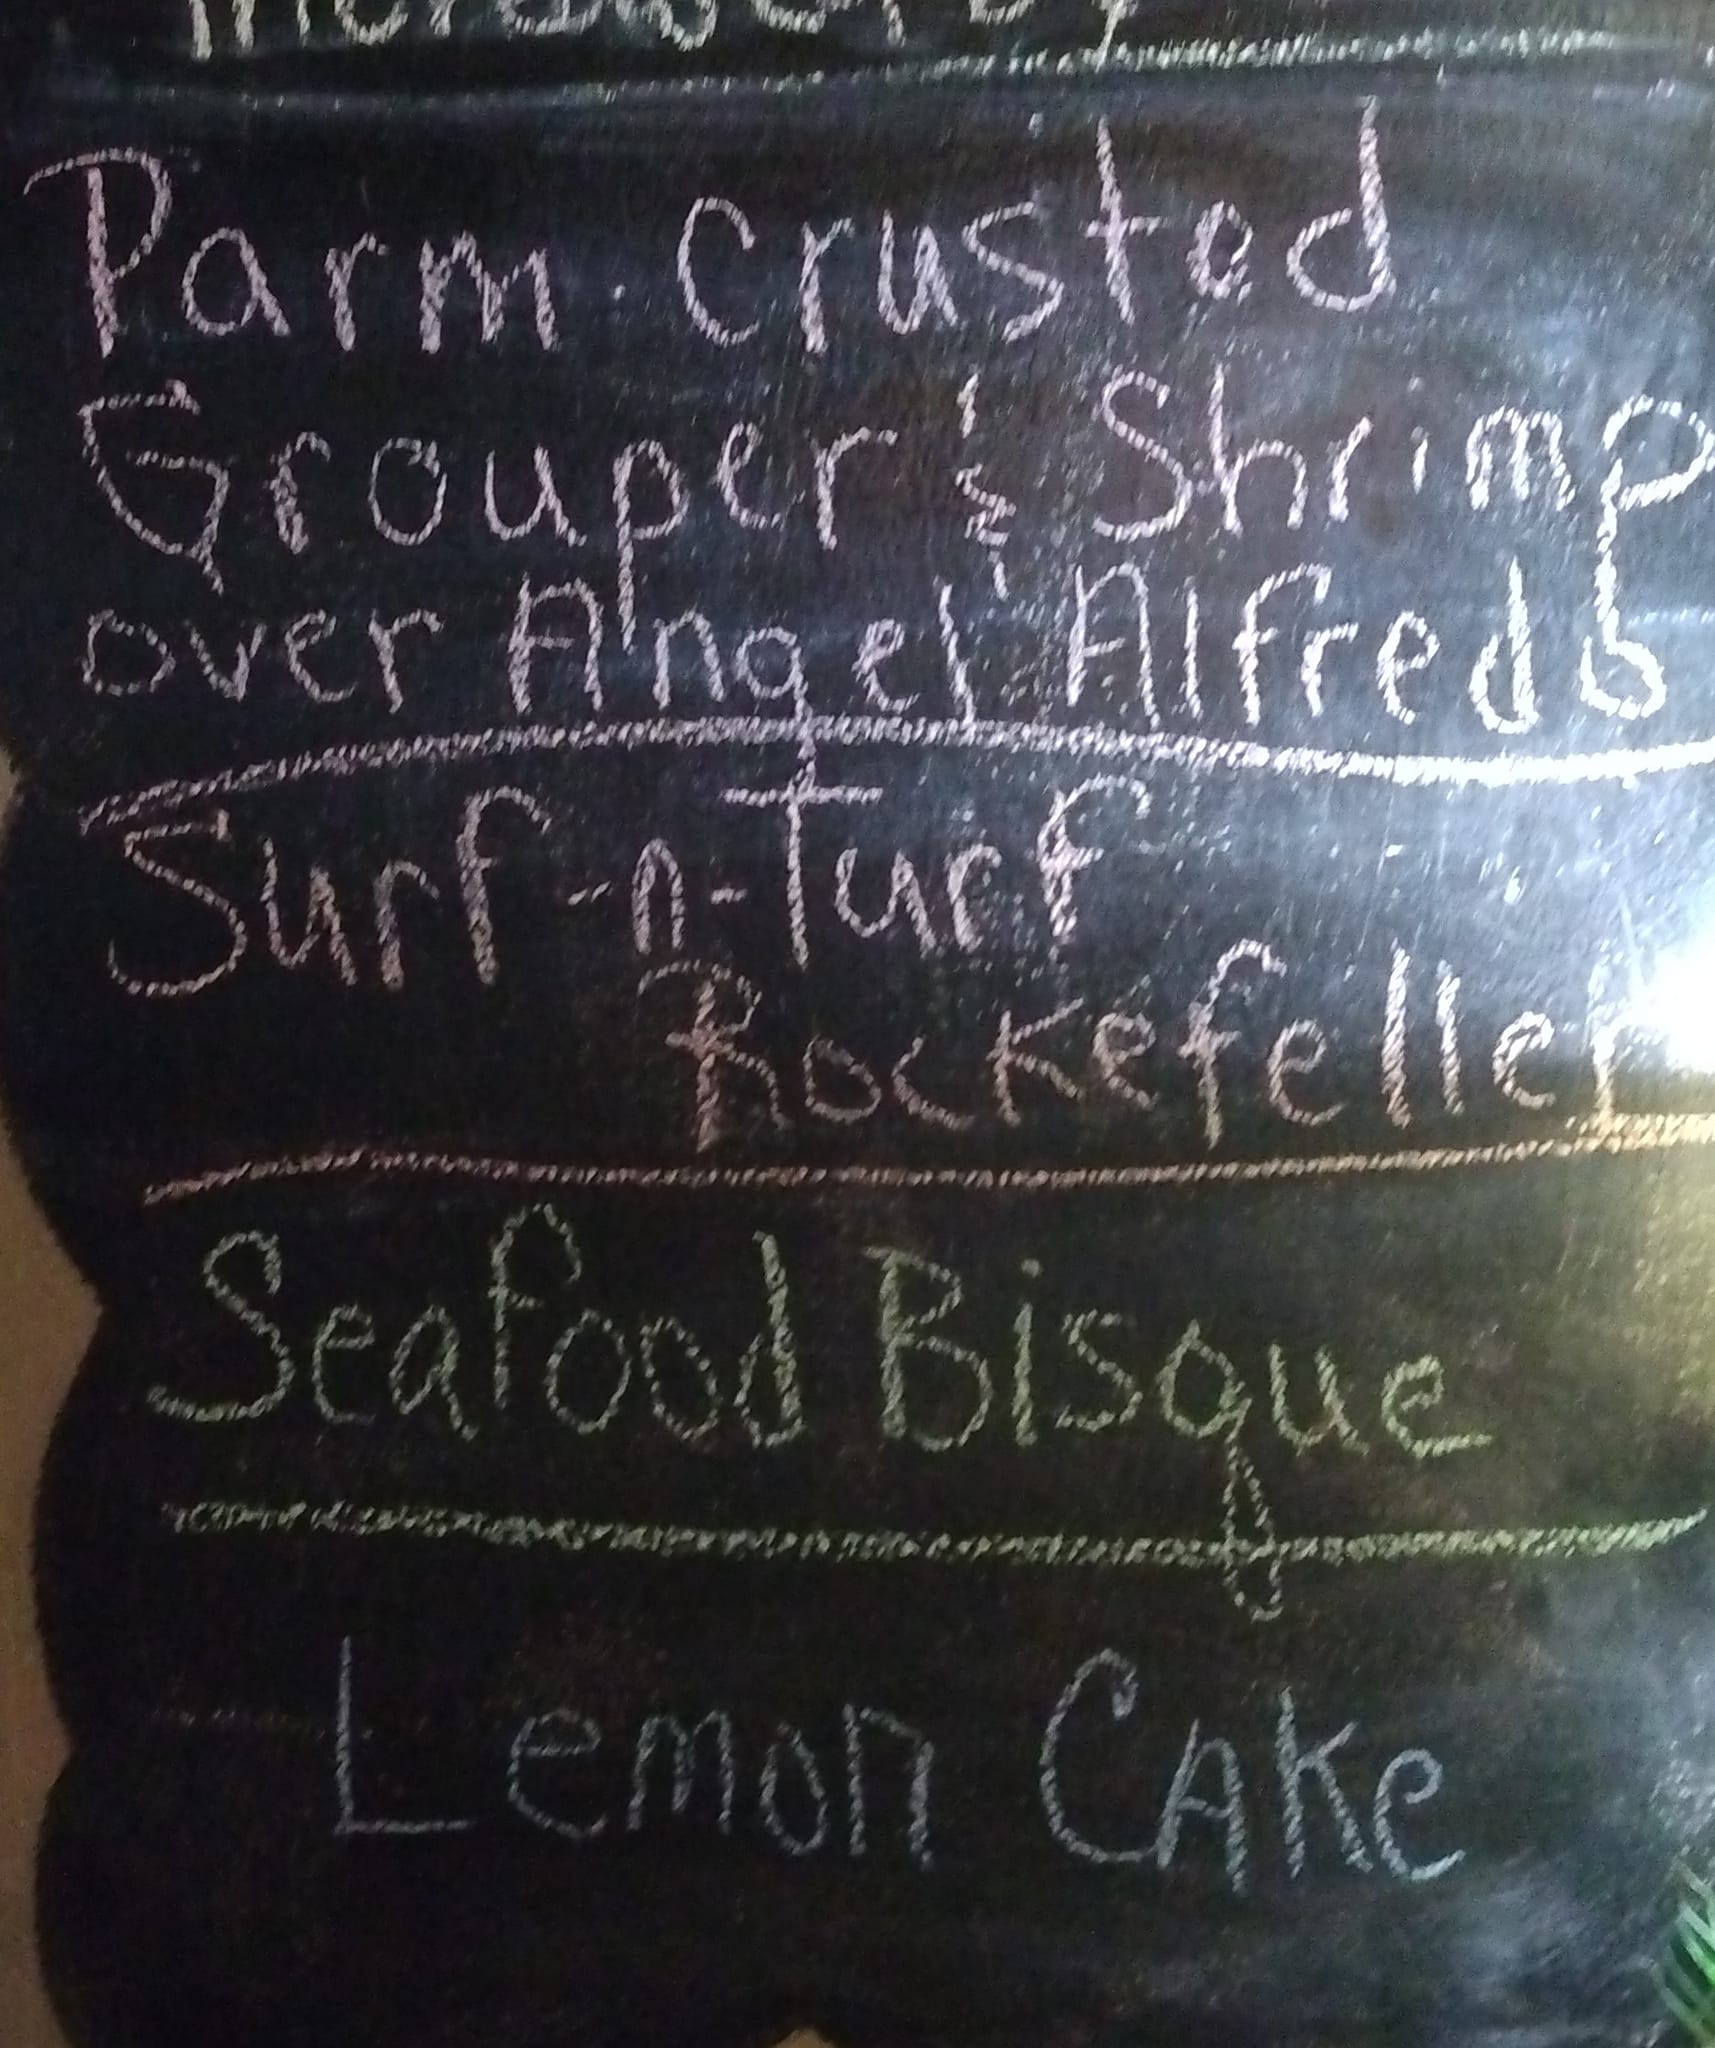 Parm. Crusted
Grouper & Shrimp
over Angel Alfredo
Surf-n-Turf
Rockefeller
Seafood Bisque
Lemon CAKe